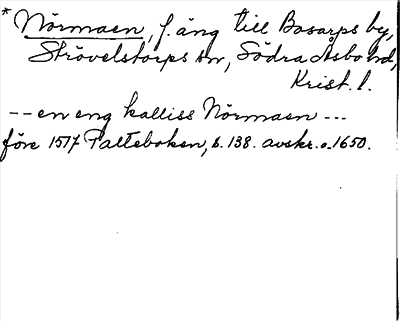 * Nörmaen, f. äng till Bosarps by,
Strövelstorps sn, Södra Åsbo hd,
Krist. l.
-- en eng kalliss Nörmaen ---
före 1517 Palteboken, s. 138. avskr. o. 1650.